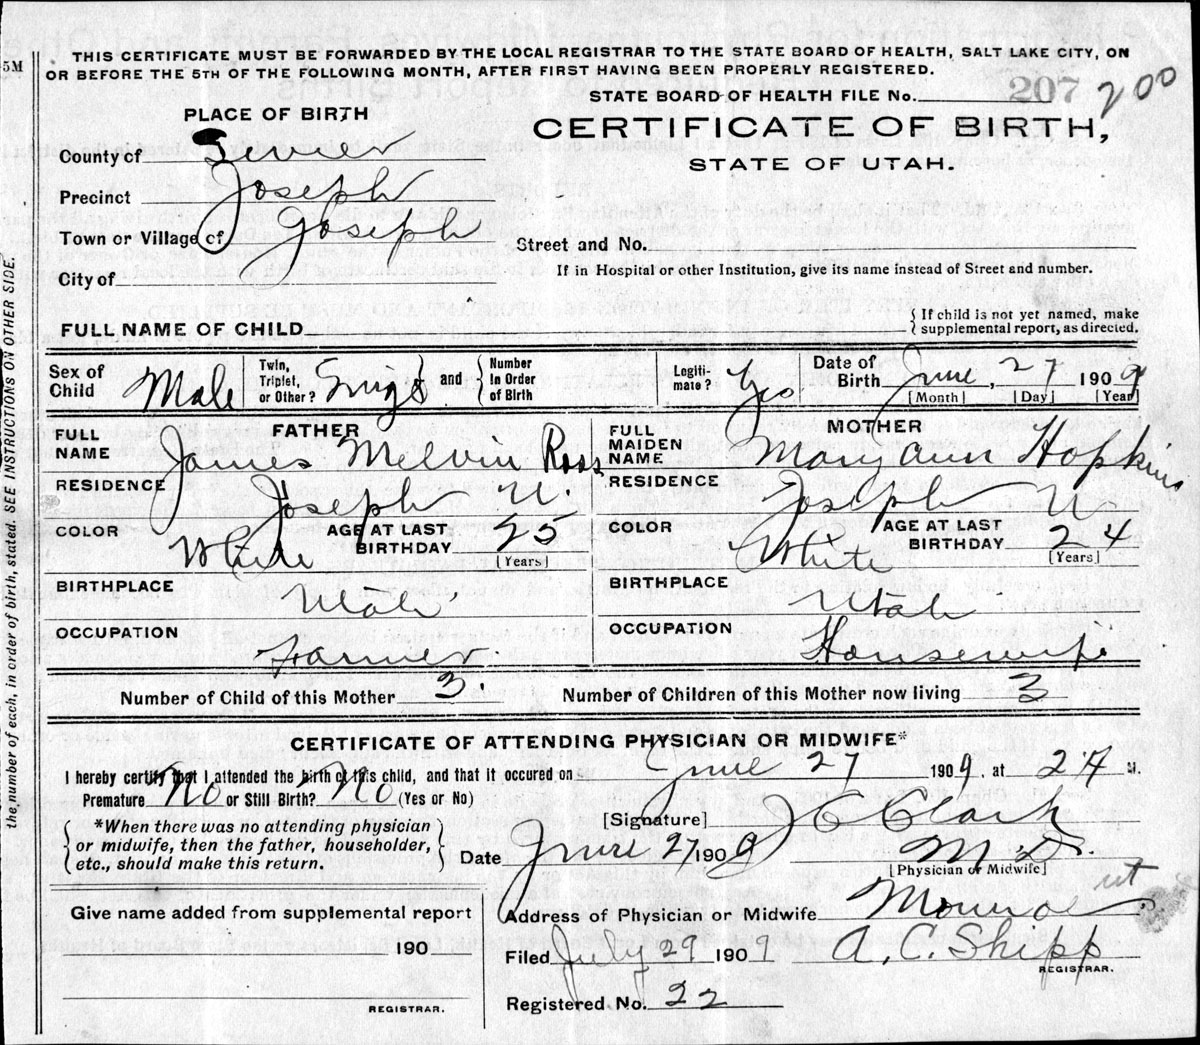 5M
THIS CERTIFICATE MUST BE FORWARDED BY THE LOCAL REGISTRAR TO THE STATE BOARD OF HEALTH, SALT LAKE CITY, ON
OR BEFORE THE 5TH OF THE FOLLOWING MONTH, AFTER FIRST HAVING BEEN PROPERLY REGISTERED.
STATE BOARD OF HEALTH FILE No. 207 200
PLACE OF BIRTH
CERTIFICATE OF BIRTH,
STATE OF UTAH.
County of Sevier
Precinct Joseph
Town or Village of Joseph
Street and No.
City of
If in Hospital or other Institution, give its name instead of Street and number.
FULL NAME OF CHILD
{If child is not yet named, make
supplemental report, as directed.
Sex of Child Male
Twin, Triplet, or Other? Singl
and
Number in Order of Birth
Legitimate? Yes
Date of Birth June, 27 1909
[Month] [Day] [Year]
FATHER
FULL NAME James Melvin Ross
RESIDENCE Joseph U.
COLOR White
AGE AT LAST BIRTHDAY 25
[Years]
BIRTHPLACE Utah
OCCUPATION Farmer
MOTHER
FULL MAIDEN NAME Mary Ann Hopkins
RESIDENCE Joseph U
COLOR White
AGE AT LAST BIRTHDAY 24
[Years]
BIRTHPLACE Utah
OCCUPATION Housewife
Number of Child of this Mother 3.
Number of Children of this Mother now living 3
CERTIFICATE OF ATTENDING PHYSICIAN OR MIDWIFE*
I hereby certify that I attended the birth of this child, and that it occured on June 27 1909, at 2 M.
Premature No or Still Birth? No (Yes or No)
{*When there was no attending physician
or midwife, then the father, householder,
etc., should make this return.}
[Signature] J C Clark
M D.
[Physician or Midwife]
Date June 27 1909
Address of Physician or Midwife Monroe ut
Filed July 29 1909 A. C. Shipp
REGISTRAR.
Registered No. 22
Give name added from supplemental report
190
REGISTRAR.
the number of each, in order of birth, stated. SEE INSTRUCTIONS ON OTHER SIDE.